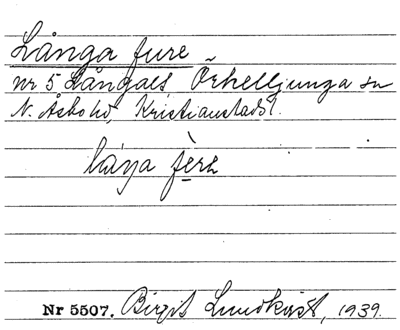 Långa fure
nr 5 Långalt Örkelljunga sn
N. Åsbo hd, Kristianstads l.
låŋa fèrə
Nr 5507. Birgit Lundkvist, 1939.